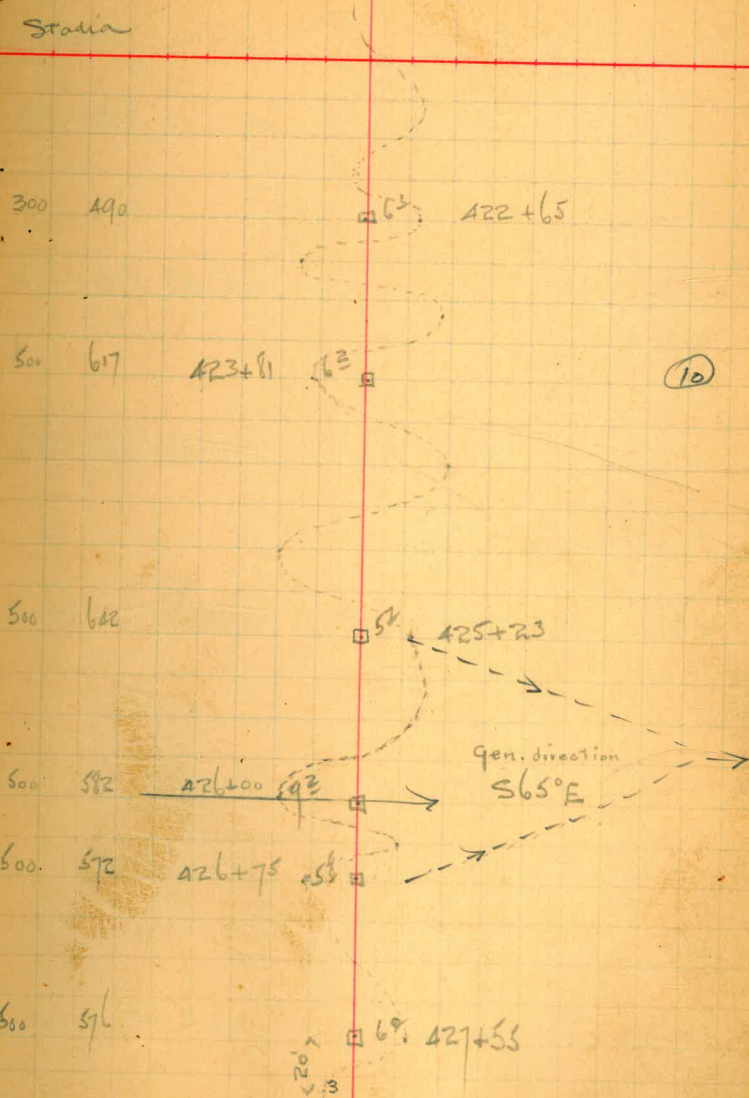 Stadia
300 490 422+65
500 617 423+81 6²
10
500 642 425+23
Gen. direction
500 582 426+00 9²
S65°E
500 572 426+75
500 576 427+55
<20'>
3